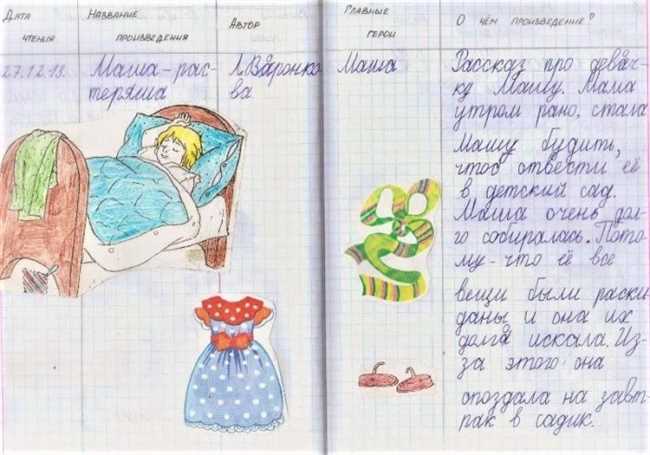 Дата чтения
Название произведения
Автор
Главные герои
О чём произведение?
27.12.18.
Маша-рас-
теряша
Л. Варонко
ва
Маша
Рассказ про девач-
ку Машу. Мама
утром рано, стала
Машу будить,
чтоб отвести её
в детский сад.
Маша очень дол-
го собиралась. Пото
му-что её все
вещи были раски
даны и она их
долга искала. Из-
за этого она
опоздала на завт-
рак в садик.